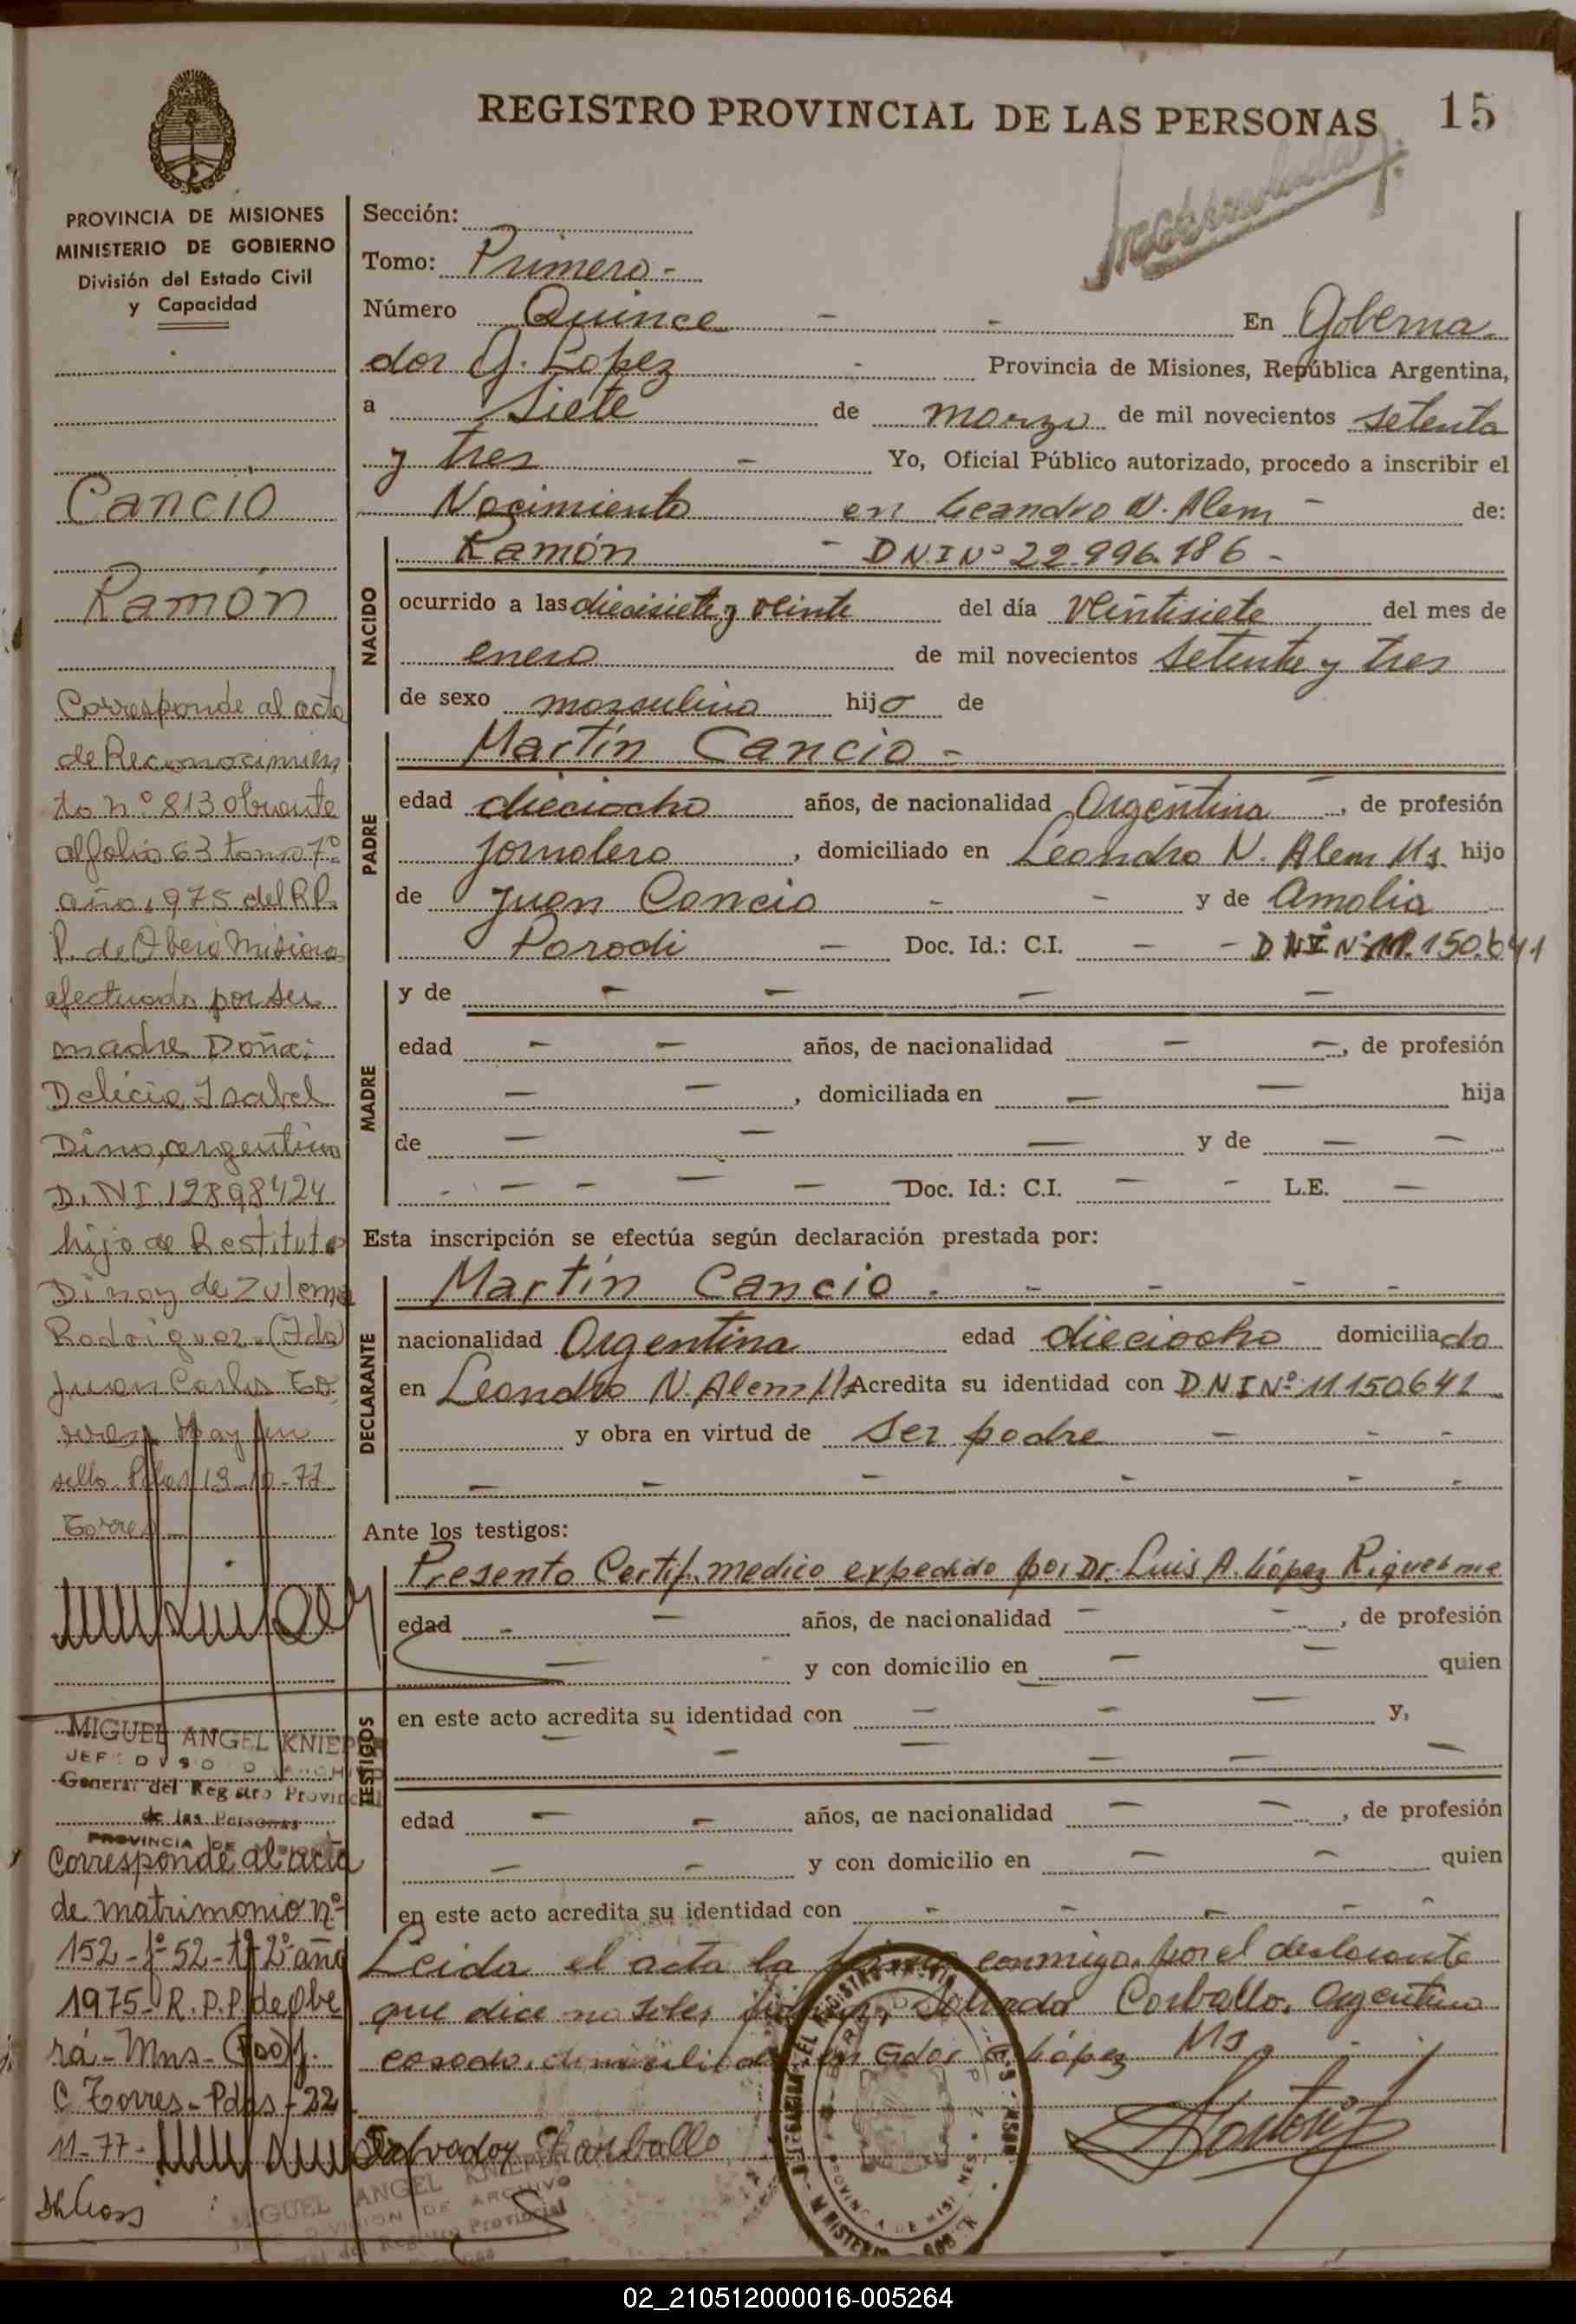 REGISTRO PROVINCIAL DE LAS PERSONAS 15
PROVINCIA DE MISIONES
MINISTERIO DE GOBIERNO
División del Estado Civil
y Capacidad
Cancio
Ramón
Corresponde al acta
de Reconocimien
to nº 813 obrante
al folio 63 tomo 1º
año 1975 del R.P.
P. de Oberá Misiones
efectuado por ser
madre Doña:
Delicia Isabel
Dino, argentina
D.N.I. 12898424
hija de Restituto
Dino y de Zulema
Rodriguez - (Fdo)
Juan Carlos To
rres Hay un
sello Pdas 19-10-77
Torres
MIGUEL ANGEL KNIEP
General del Registro Provincial
de las Personas
PROVINCIA DE
Corresponde al acta
de matrimonio nº
152-fº 52-tº 2º año
1975 R.P.P. de Obe
rá - Mns - (Fdo) J.
C Torres - Pdas - 22
11-77-
Sección:
Tomo: Primero -
Número Quince - - En Goberna
dor G. Lopez - Provincia de Misiones, República Argentina,
a Siete de marzo de mil novecientos setenta
y tres - Yo, Oficial Público autorizado, procedo a inscribir el
Nacimiento en Leandro N. Alem - de:
NACIDO
Ramón - DNI Nº 22.996.186 -
ocurrido a las diecisiete y veinte del día veintisiete del mes de
enero de mil novecientos setenta y tres
de sexo masculino hijo de
PADRE
Martín Cancio -
edad dieciocho años, de nacionalidad Argentina -, de profesión
jornalero, domiciliado en Leandro N. Alem Ms hijo
de Juan Cancio - - y de Amalia
Parodi - Doc. Id.: C.I. - - DNI Nº 11.150.641
MADRE
y de - - - -
edad - - años, de nacionalidad - -, de profesión
- -, domiciliada en - - hija
de - - - y de - -
- - - - - Doc. Id.: C.I. - - L.E. -
Esta inscripción se efectúa según declaración prestada por:
DECLARANTE
Martín Cancio . - - - -
nacionalidad Argentina edad dieciocho domiciliado
en Leandro N. Alem Ms Acredita su identidad con DNI Nº 11150641
y obra en virtud de ser padre - - -
- - - - - -
Ante los testigos:
TESTIGOS
Presento Certif. medico expedido por Dr. Luis A. López Riquelme
edad - - años, de nacionalidad - -, de profesión
- - y con domicilio en - - quien
en este acto acredita su identidad con - - - y,
- - - - -
edad - - años, de nacionalidad - -, de profesión
- - y con domicilio en - - quien
en este acto acredita su identidad con - - - - -
Leida el acta la conmigo, por el declarante
que dice no saber Salvador Carballo, Argentino
casado, domiciliado en Gdor G. López Ms
Salvador Carballo
MIGUEL ANGEL KNIEP
DIVISION DE ARCHIVO
del Registro Provincial
02_210512000016-005264